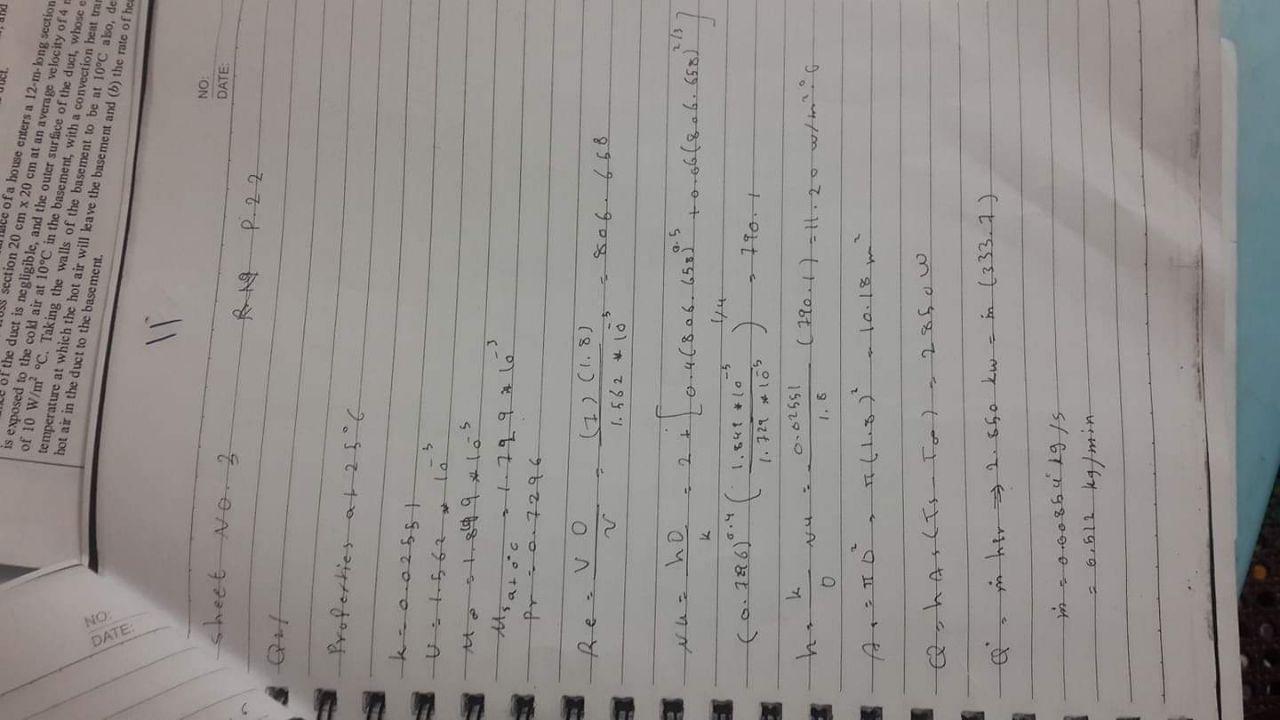 uct.
, and
rface of a house enters a 12-m-long section
oss section 20 cm x 20 cm at an average velocity of 4 m
ce of the duct is negligible, and the outer surface of the duct, whose e
is exposed to the cold air at 10°C in the basement, with a convection heat tran
of 10 W/m² °C. Taking the walls of the basement to be at 10°C also, de
temperature at which the hot air will leave the basement and (b) the rate of hea
hot air in the duct to the basement.
NO:
DATE:
NO:
DATE:
11
Sheet No. 3
P.22
Q1/
Properties at 25°C
k = 0.02551
υ = 1.562 * 10⁻⁵
M∞ = 1.849 * 10⁻⁵
Ms at 0°C = 1.729 * 10⁻⁵
Pr = 0.7296
Re = VD/ν = (7)(1.8)/1.562 * 10⁻⁵ = 806.658
Nu = hD/k = 2 + [0.4(806.658)^0.5 + 0.06(806.658)^2/3]
(0.7296)^0.4 (1.849 * 10⁻⁵/1.729 * 10⁻⁵)^1/4 = 790.1
h = k/D Nu = 0.02551/1.8 (790.1) = 11.20 W/m².°C
As = πD² = π(1.8)² = 10.18 m²
Q = hAs(Ts - T∞) = 2850 W
Q° = ṁ hsr ⇒ 2.850 kw = ṁ (333.7)
ṁ = 0.00854 kg/s
= 0.512 kg/min